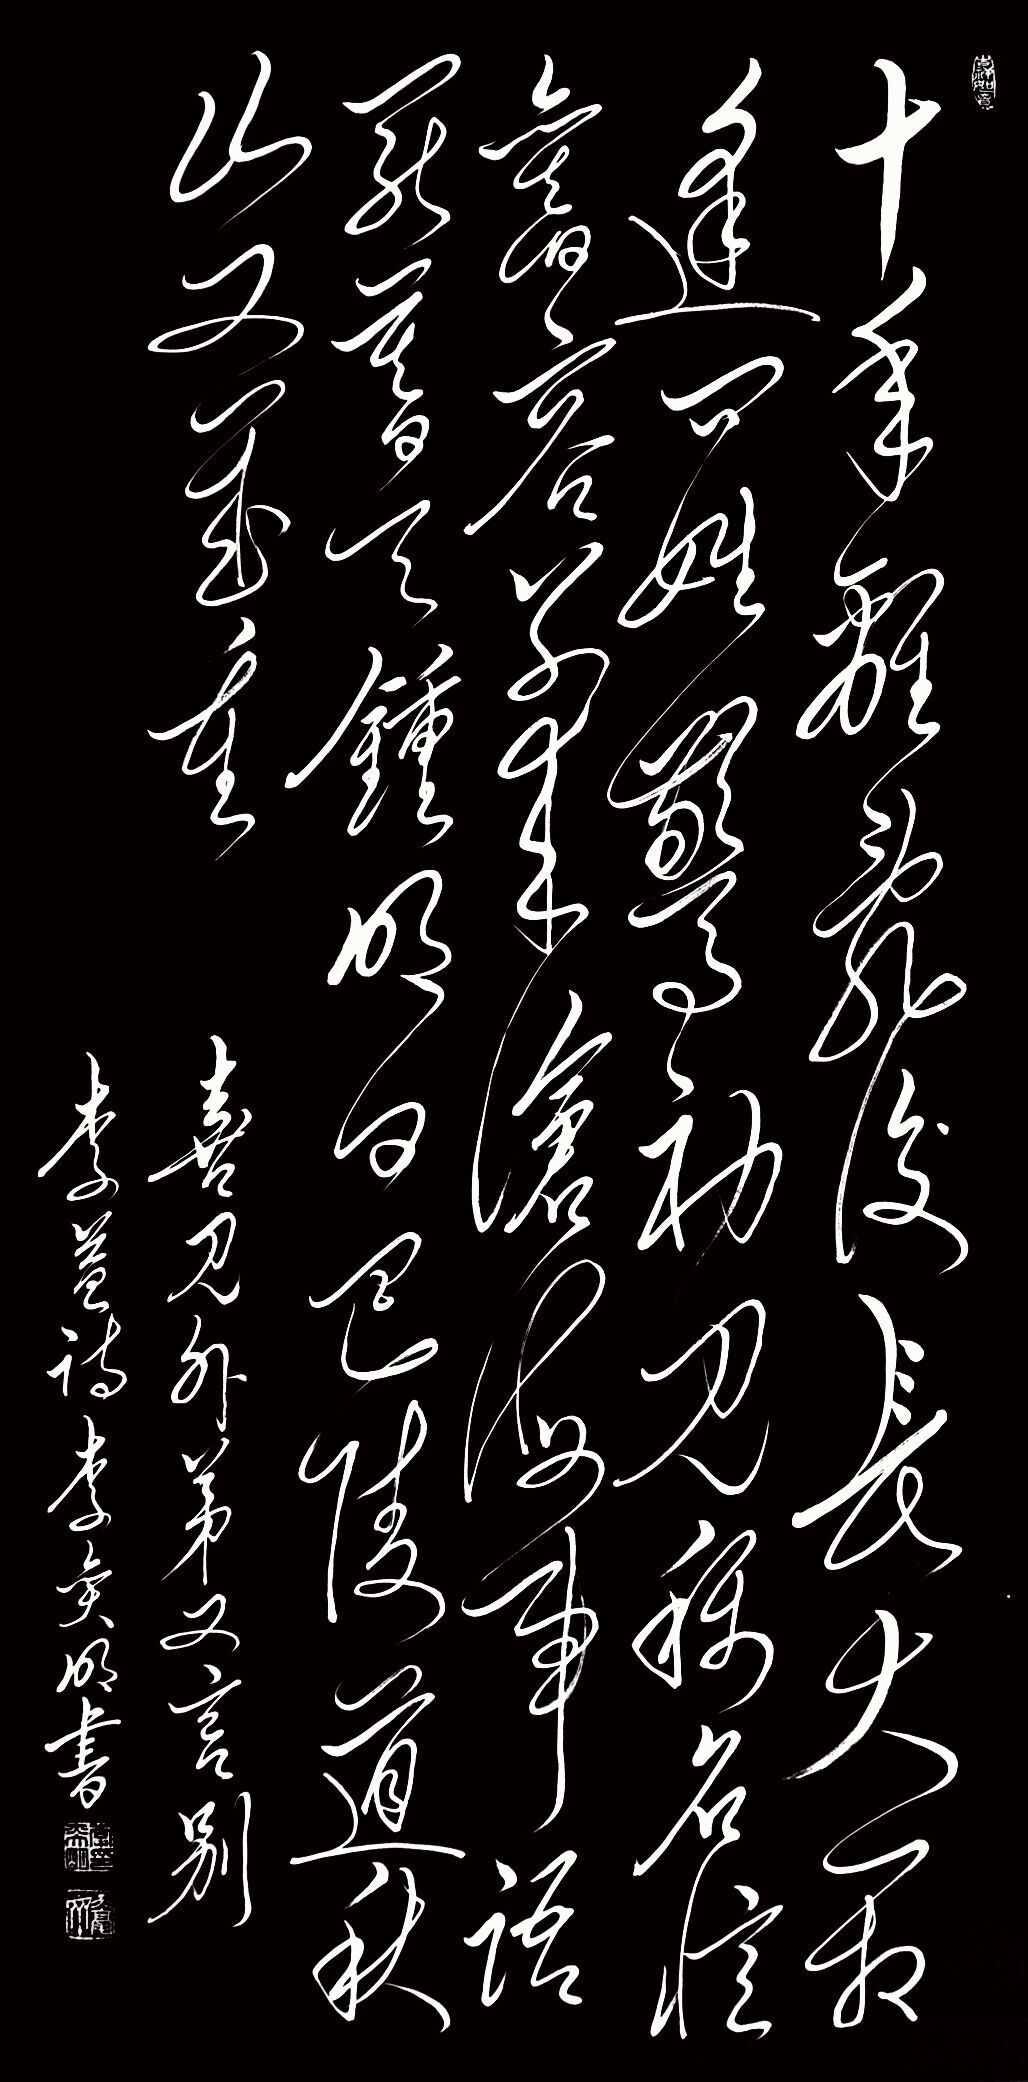 十年離亂後長大一相
逢問姓驚初見稱名憶
舊容別來滄海事語
罷暮天鍾明日巴陵道秋
山又幾重
喜見外弟又言別
李益詩李奐明書